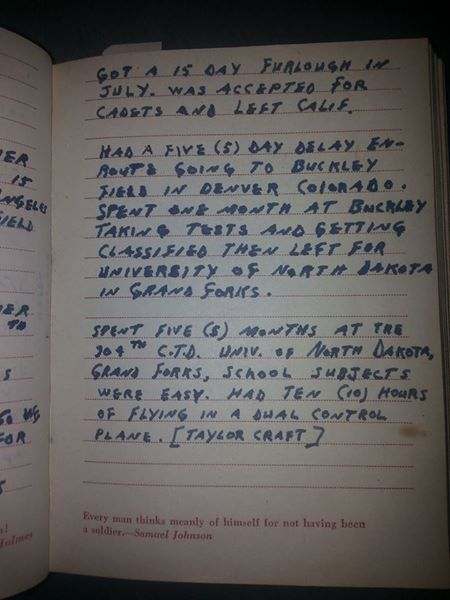 GOT A 15 DAY FURLOUGH IN
JULY. WAS ACCEPTED FOR
CADETS AND LEFT CALIF.
HAD A FIVE (5) DAY DELAY EN-
ROUTE GOING TO BUCKLEY
FIELD IN DENVER COLORADO.
SPENT ONE MONTH AT BUCKLEY
TAKING TESTS AND GETTING
CLASSIFIED THEN LEFT FOR
UNIVERSITY OF NORTH DAKOTA
IN GRAND FORKS.
SPENT FIVE (5) MONTHS AT THE
304TH C.T.D. UNIV. OF NORTH DAKOTA,
GRAND FORKS, SCHOOL SUBJECTS
WERE EASY. HAD TEN (10) HOURS
OF FLYING IN A DUAL CONTROL
PLANE. [TAYLOR CRAFT]
Every man thinks meanly of himself for not having been
a soldier.—Samuel Johnson
15
FIELD
TH
S
FOR
Holmes